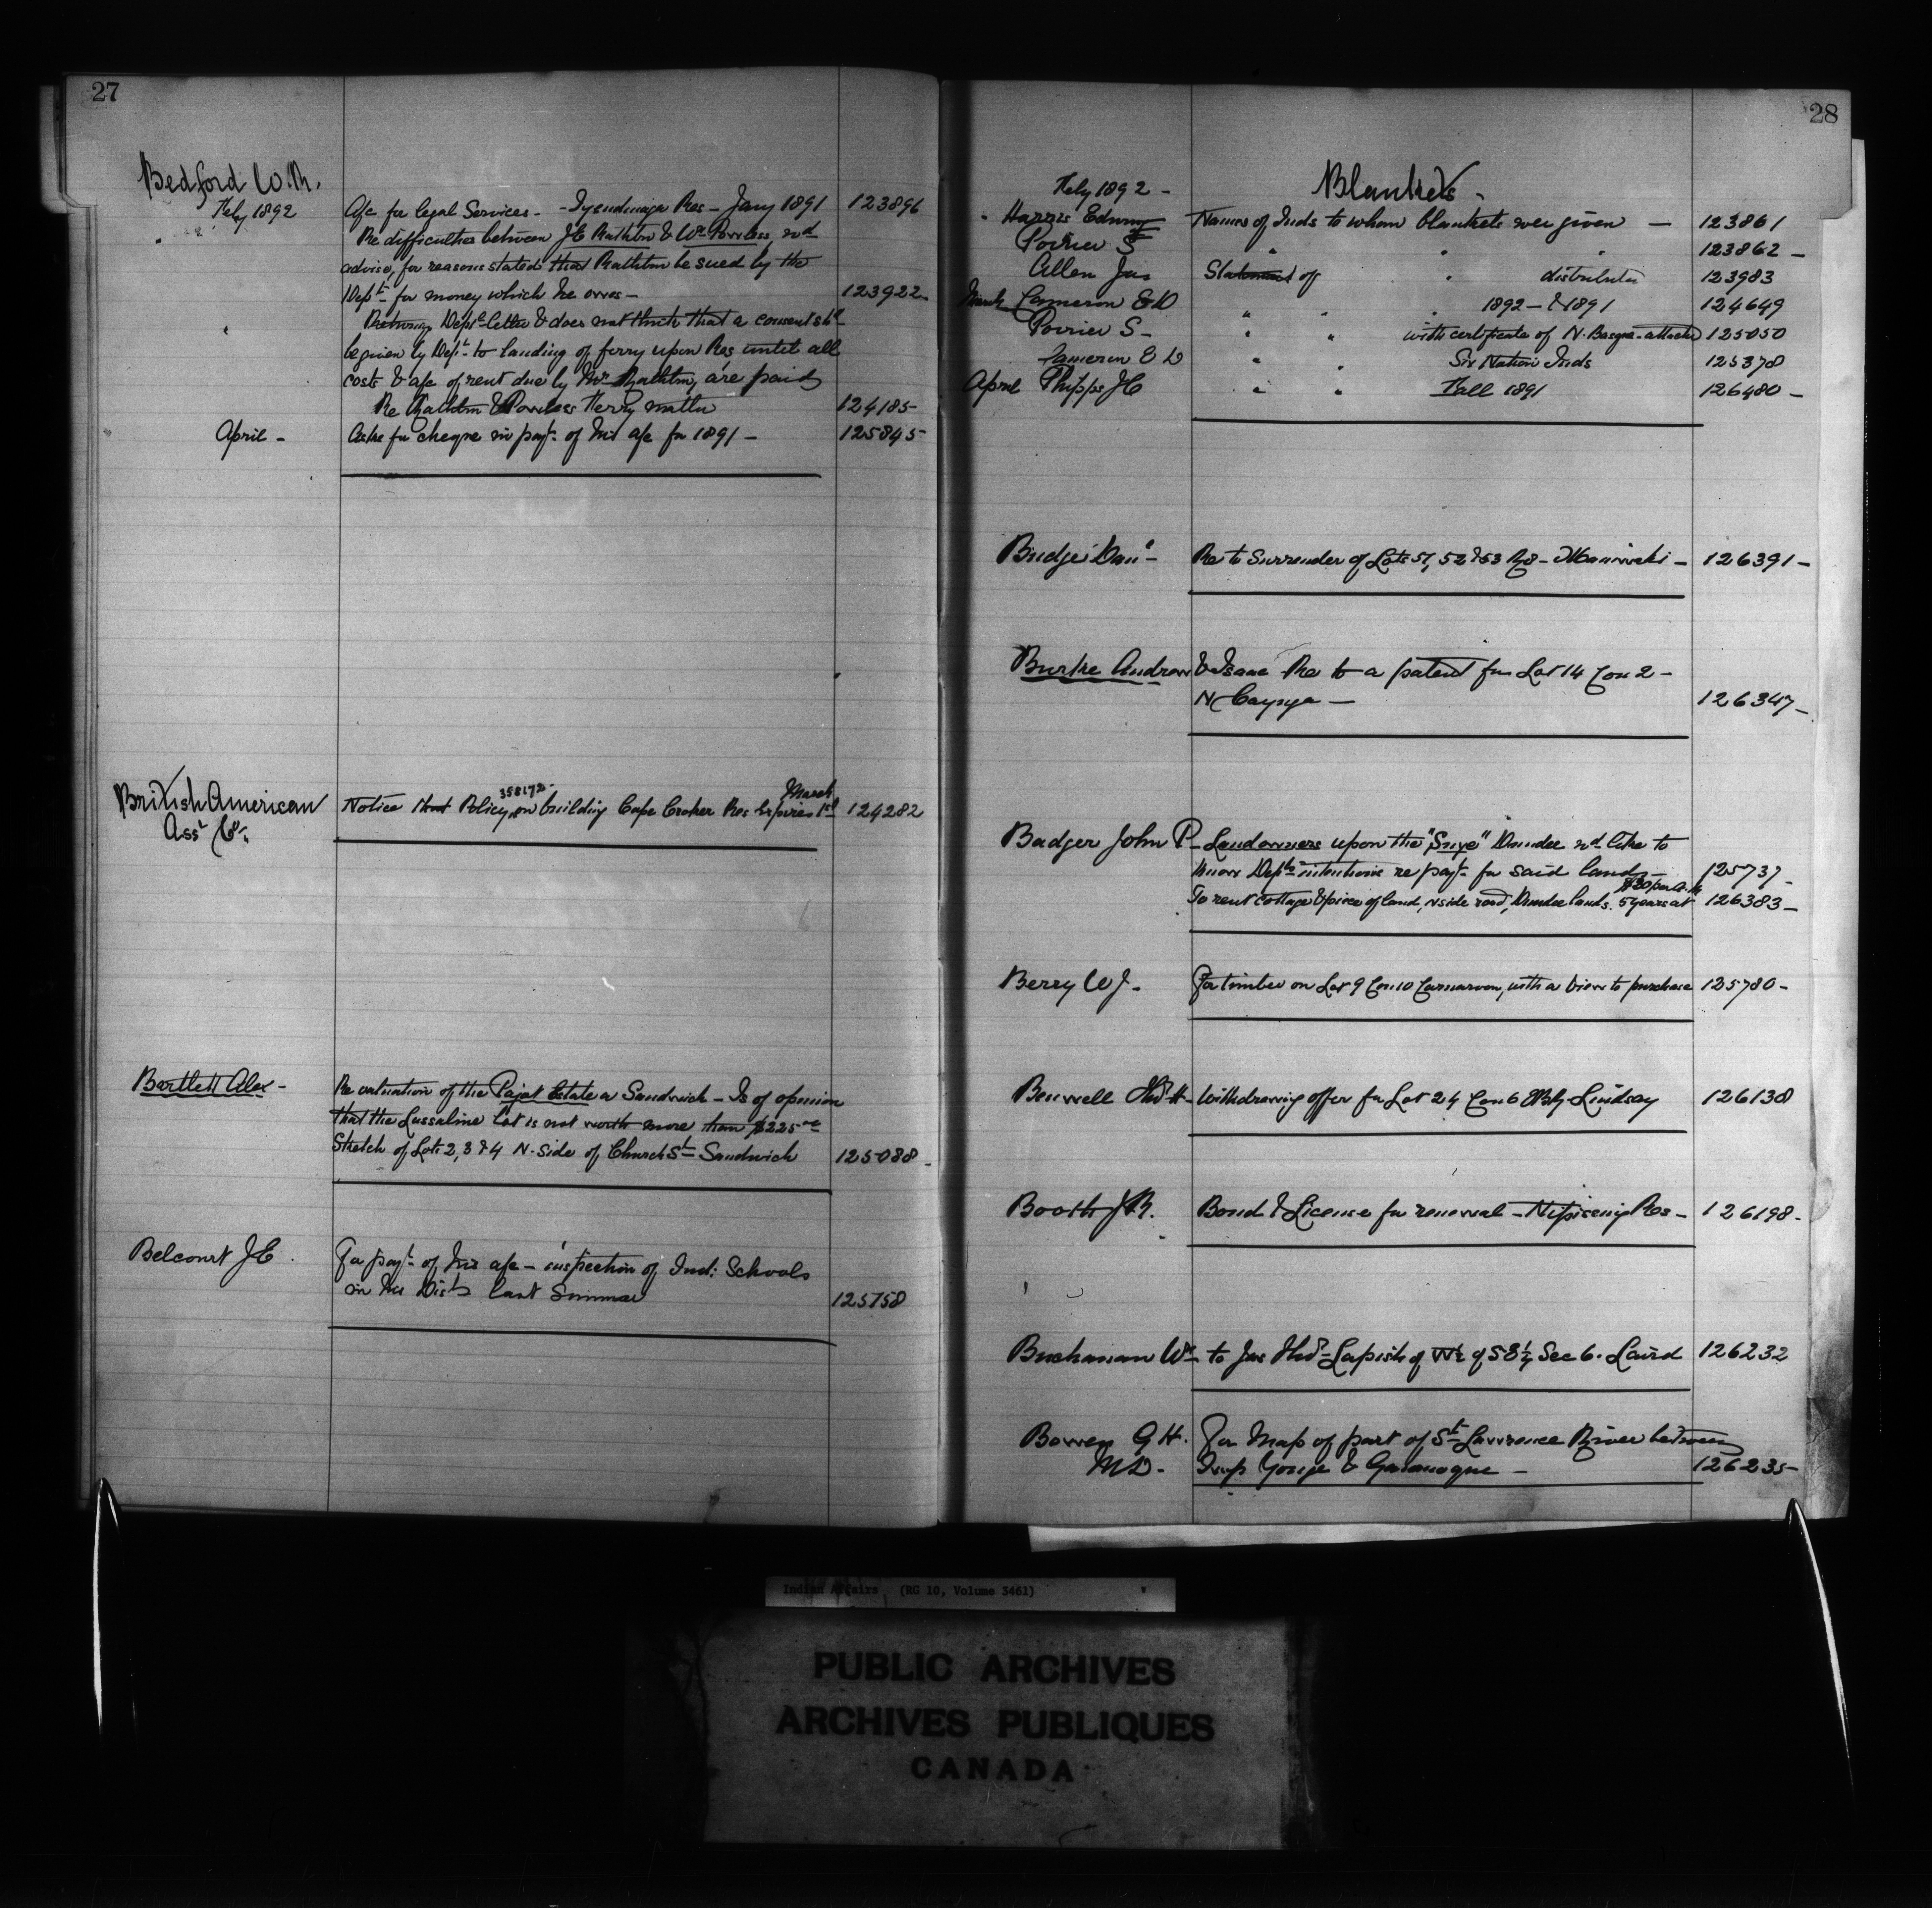 27
Bedford W.R.
Feby 1892 A/c for legal Services - Tyendinaga Res - Jany 1891 123896
Re difficulties between J E Rathbun & Wm Powless, wd
advise, for reasons stated that Rathbun be sued by the
Dept for money which he owes - 123922
Returning Depts letter & does not think that a consent shd
be given by Dept to landing of ferry upon Res until all
costs & a/c of rent due by Mr Rathbun are paid
Re Rathbun & Powless Ferry matter 124185
April - Asks for cheque in payt of his a/c for 1891 - 125845
British American
Asse Co. Notice that Policy 358172 on building Cape Croker Res Expires March 1st 124282
Bartlett Alex - Re valuation of the Pajot Estate Sandwich - Is of opinion
that the Lussaline Lot is not worth more than $225 00
Sketch of Lots 2, 3 & 4 N. Side of Church St Sandwich 125088
Belcourt J E For payt of his a/c - inspection of Ind: Schools
in his Dist last Summer 125758
28
Feby 1892 - Blankets -
Harris Edwing Names of Inds to whom blankets were given - 123861
Poirier S " " " 123862 -
Allen Jas Statement of " distributed 123983
March Cameron E D " " " 1892 - & 1891 124649
Poirier S - " " with certificate of N. Basque attached 125050
Cameron E D " " Six Nation Inds 125378
April Phipps J C " " Fall 1891 126480 -
Budge Danl - Re to Surrender of Lots 51, 52 & 53 R 8 - Maniwaki - 126391 -
Burke Andrew & Isaac Re to a patent for Lot 14 Con 2 -
N Cayuga - 126347 -
Badger John P - Landowners upon the "Dundee wd like to
know Depts intentions re payt for said land - 125737 -
To rent cottage & piece of land, N side road, Dundee lands. 5 years at $30 per a. 126383 -
Berry W J. For timber on Lot 9 Con 10 Carnarvon, with a view to purchase 125780 -
Benwell Thos H - Withdrawing offer for Lot 24 Con 6 Lindsay 126138
Booth J R. Bond & License for renewal - Nipissing Res - 126198 -
Buchanan Wm to Jas Thos Lapish of W½ of SE¼ Sec 6. Laird 126232
Bowen G H. For Map of part of St Lawrence River between
M D - Twp Yonge & Gananoque - 126235 -
Indian Affairs (RG 10, Volume 3461)
PUBLIC ARCHIVES
ARCHIVES PUBLIQUES
CANADA